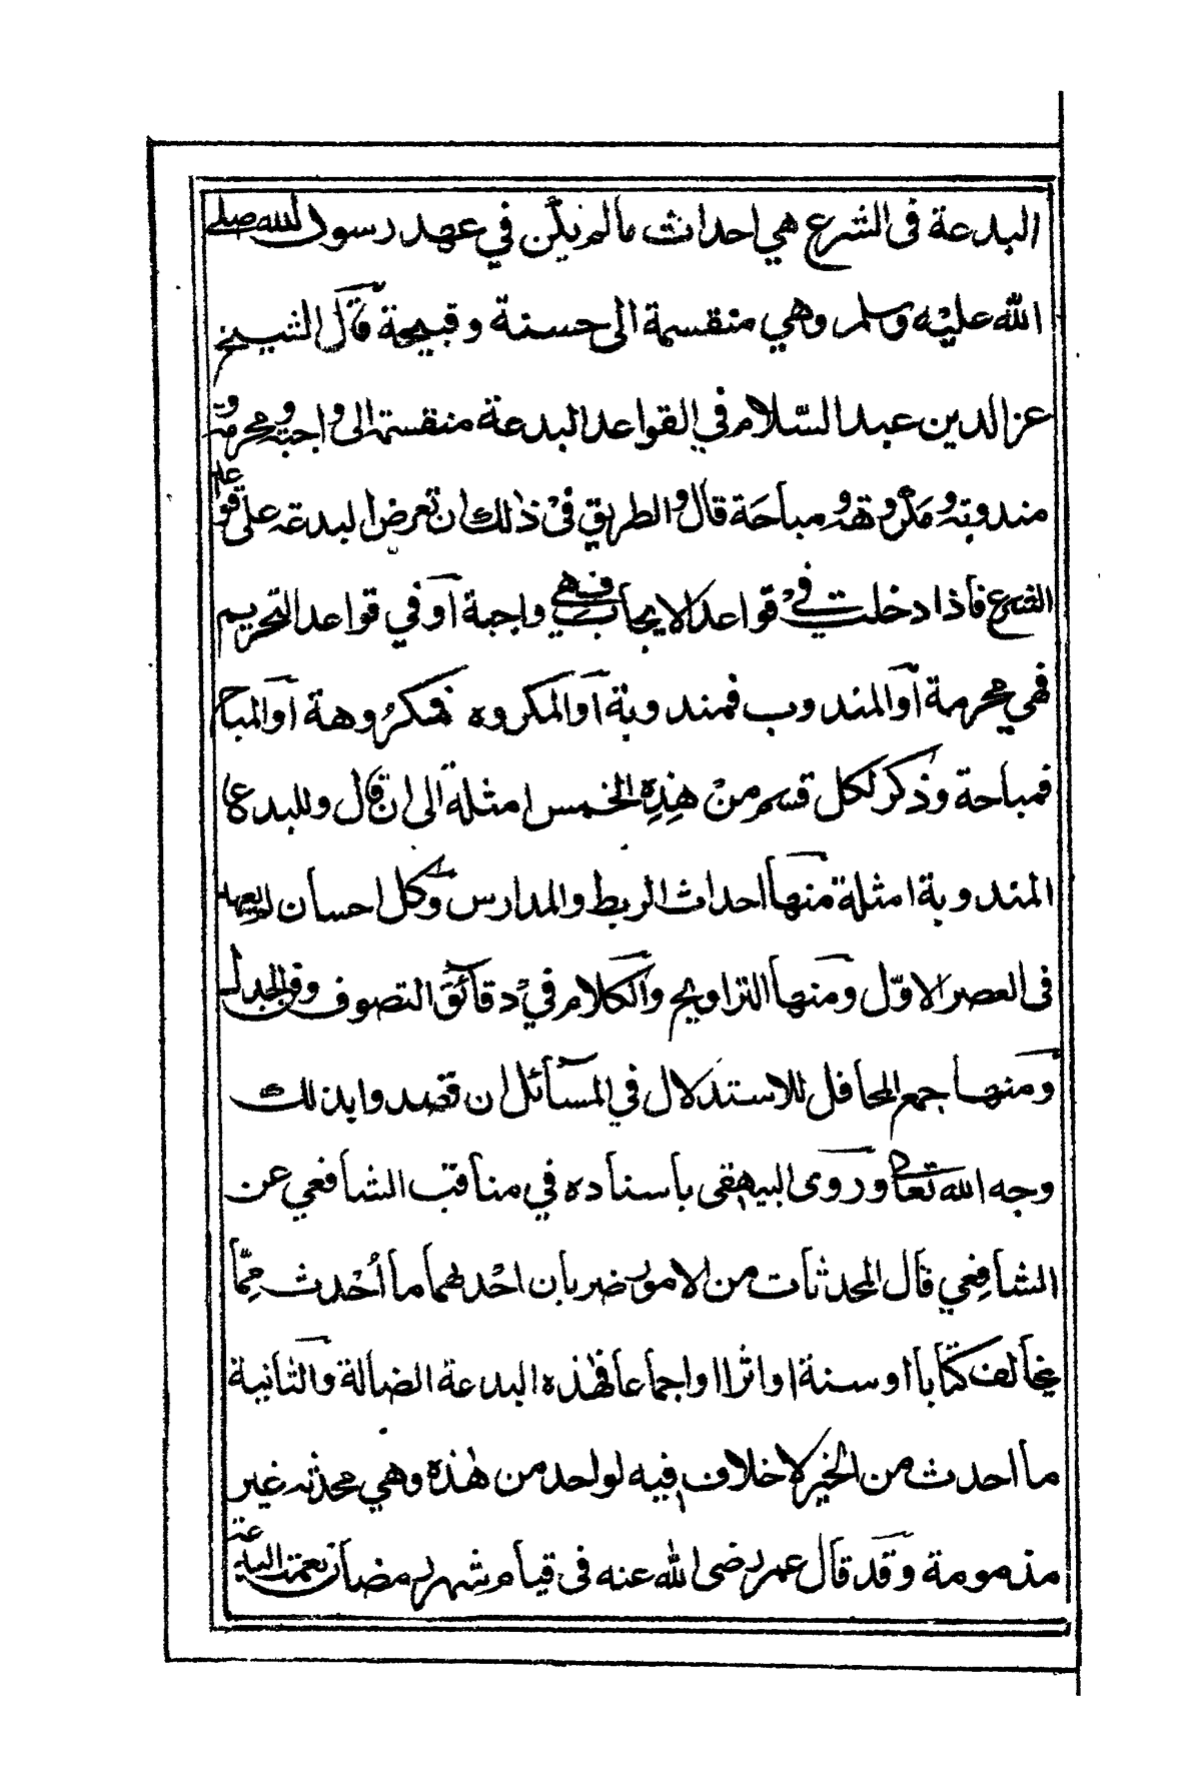 البدعة فى الشرع هي احداث مالم يكن في عهد رسول الله صلى
الله عليه وسلم وهي منقسمة الى حسنة وقبيحة قال الشيخ
عز الدين عبد السلام في القواعد البدعة منقسمة الى واجبة ومحرمة و
مندوبة ومكروهة ومباحة قال والطريق فى ذلك ان تعرض البدعة على قواعد
الشرع فاذا دخلت في قواعد الايجاب فهي واجبة او في قواعد التحريم
فهي محرمة او المندوب فمندوبة او المكروه فمكروهة او المباح
فمباحة وذكر لكل قسم من هذه الخمس امثلة الى ان قال وللبدع
المندوبة امثلة منها احداث الربط والمدارس وكل احسان لم يعهد
فى العصر الاول ومنها التراويح والكلام في دقائق التصوف وفي الجدل
ومنها جمع المحافل للاستدلال في المسائل ان قصدوا بذلك
وجه الله تعالى وروى البيهقى باسناده في مناقب الشافعي عن
الشافعي قال المحدثات من الامور ضربان احدهما ما أحدث مما
يخالف كتابا او سنة او اثرا او اجماعا فهذه البدعة الضالة والثانية
ما احدث من الخير لا خلاف فيه لواحد من هذه وهي محدثة غير
مذمومة وقد قال عمر رضى الله عنه فى قيام شهر رمضان نعمت البدعة